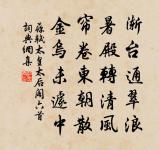 漸台通翠浪
暑殿轉清風
帘卷東朝散
金烏未遽中
蘇軾太皇太后閣六首
詞典網集